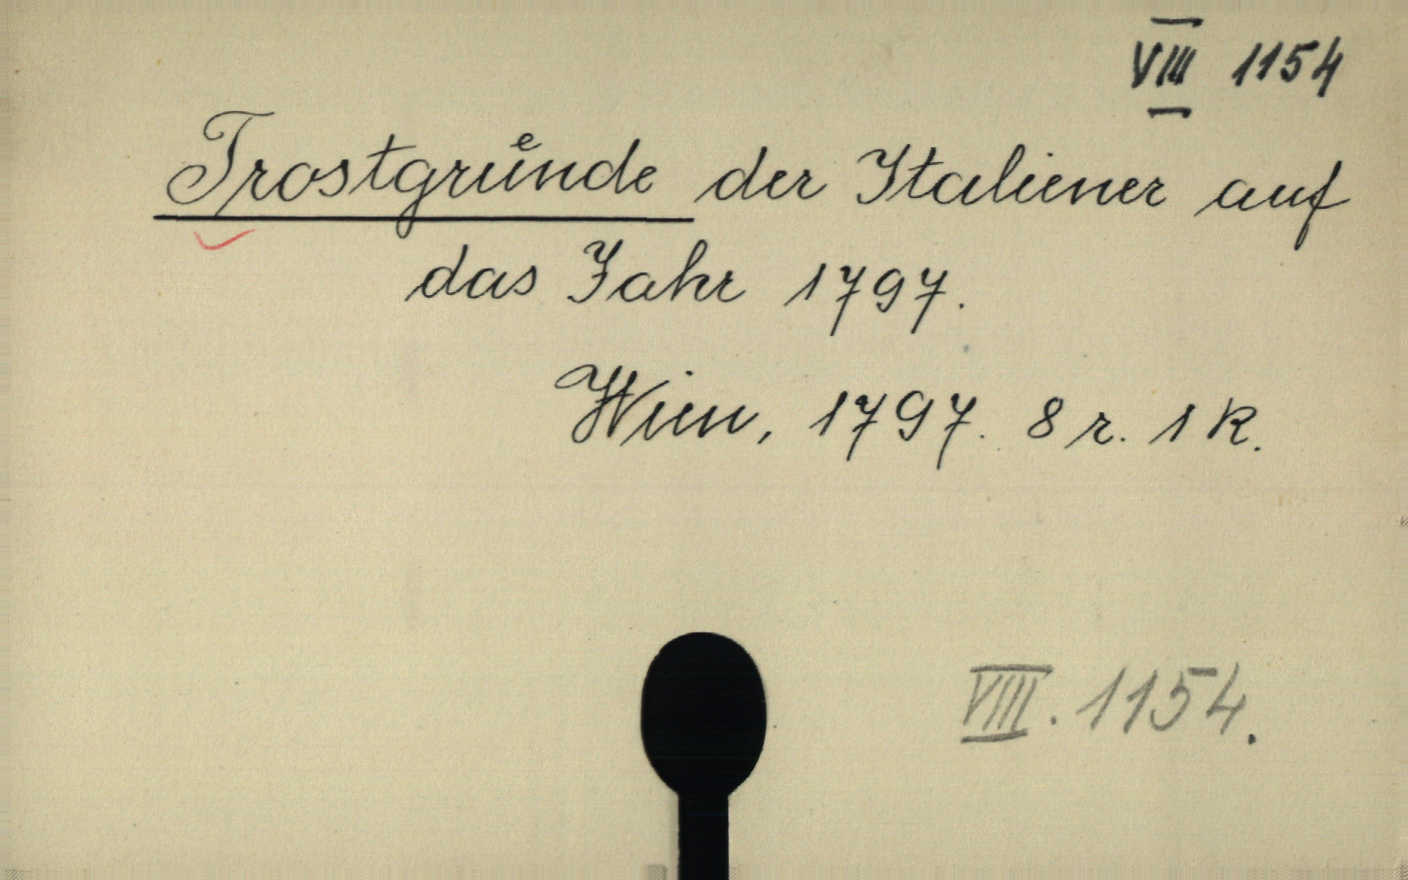 VIII 1154
Trostgruͤnde der Italiener auf
das Jahr 1797.
Wien, 1797. 8 r. 1 k.
VIII. 1154.